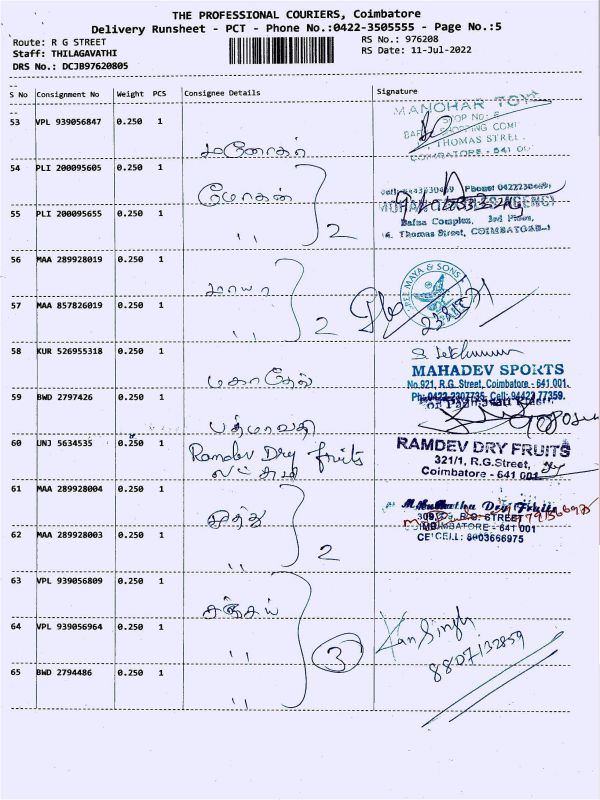 THE PROFESSIONAL COURIERS, Coimbatore
Delivery Runsheet - PCT - Phone No.:0422-3505555 - Page No.:5
Route: R G STREET
RS No.: 976208
Staff: THILAGAVATHI
RS Date: 11-Jul-2022
DRS No.: DCJB97620805
S No Consignment No Weight PCS Consignee Details Signature
53 VPL 939056847 0.250 1
மனோகர்
MANOHAR TOYS
THOMAS STREET
COIMBATORE - 641 00
54 PLI 200095605 0.250 1
மோகன்
55 PLI 200095655 0.250 1
,, 2
Bafna Complex, 3rd Floor,
Thomas Street, COIMBATORE-1
56 MAA 289928019 0.250 1
மாயா
MAYA & SONS
57 MAA 857826019 0.250 1
,, 2
58 KUR 526955318 0.250 1
மகாதேவ்
MAHADEV SPORTS
No.921, R.G. Street, Coimbatore - 641 001.
Ph: 0422 2307735, Cell: 94422 77359.
59 BWD 2797426 0.250 1
பத்மாவதி
60 UNJ 5634535 0.250 1
Ramdev Dry fruits
லட்சுமி
RAMDEV DRY FRUITS
321/1, R.G.Street,
Coimbatore - 641 001
61 MAA 289928004 0.250 1
முத்து
Dry Fruits
R.G. STREET
COIMBATORE - 641 001
CELL: 8003666975
62 MAA 289928003 0.250 1
,, 2
63 VPL 939056809 0.250 1
சஞ்சய்
64 VPL 939056964 0.250 1
,, 3
Singh
8807132859
65 BWD 2794486 0.250 1
,,